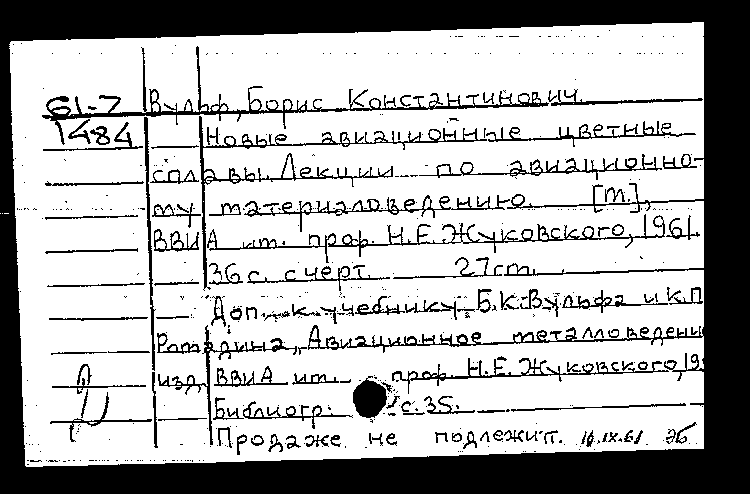 61-7 Вульф, Борис Константинович.
1484 Новые авиационные цветные
сплавы. Лекции по авиационно-
му материаловедению. [М.],
ВВИА им. проф. Н.Е.Жуковского, 1961.
36 с. с черт. 27 см.
Доп. к учебнику Б.К.Вульфа и К.П.
Ромадина, Авиационное металловедени
изд. ВВИА им. проф. Н.Е.Жуковского, 19
Библиогр: с.35.
Продаже не подлежит. 11.IX.61